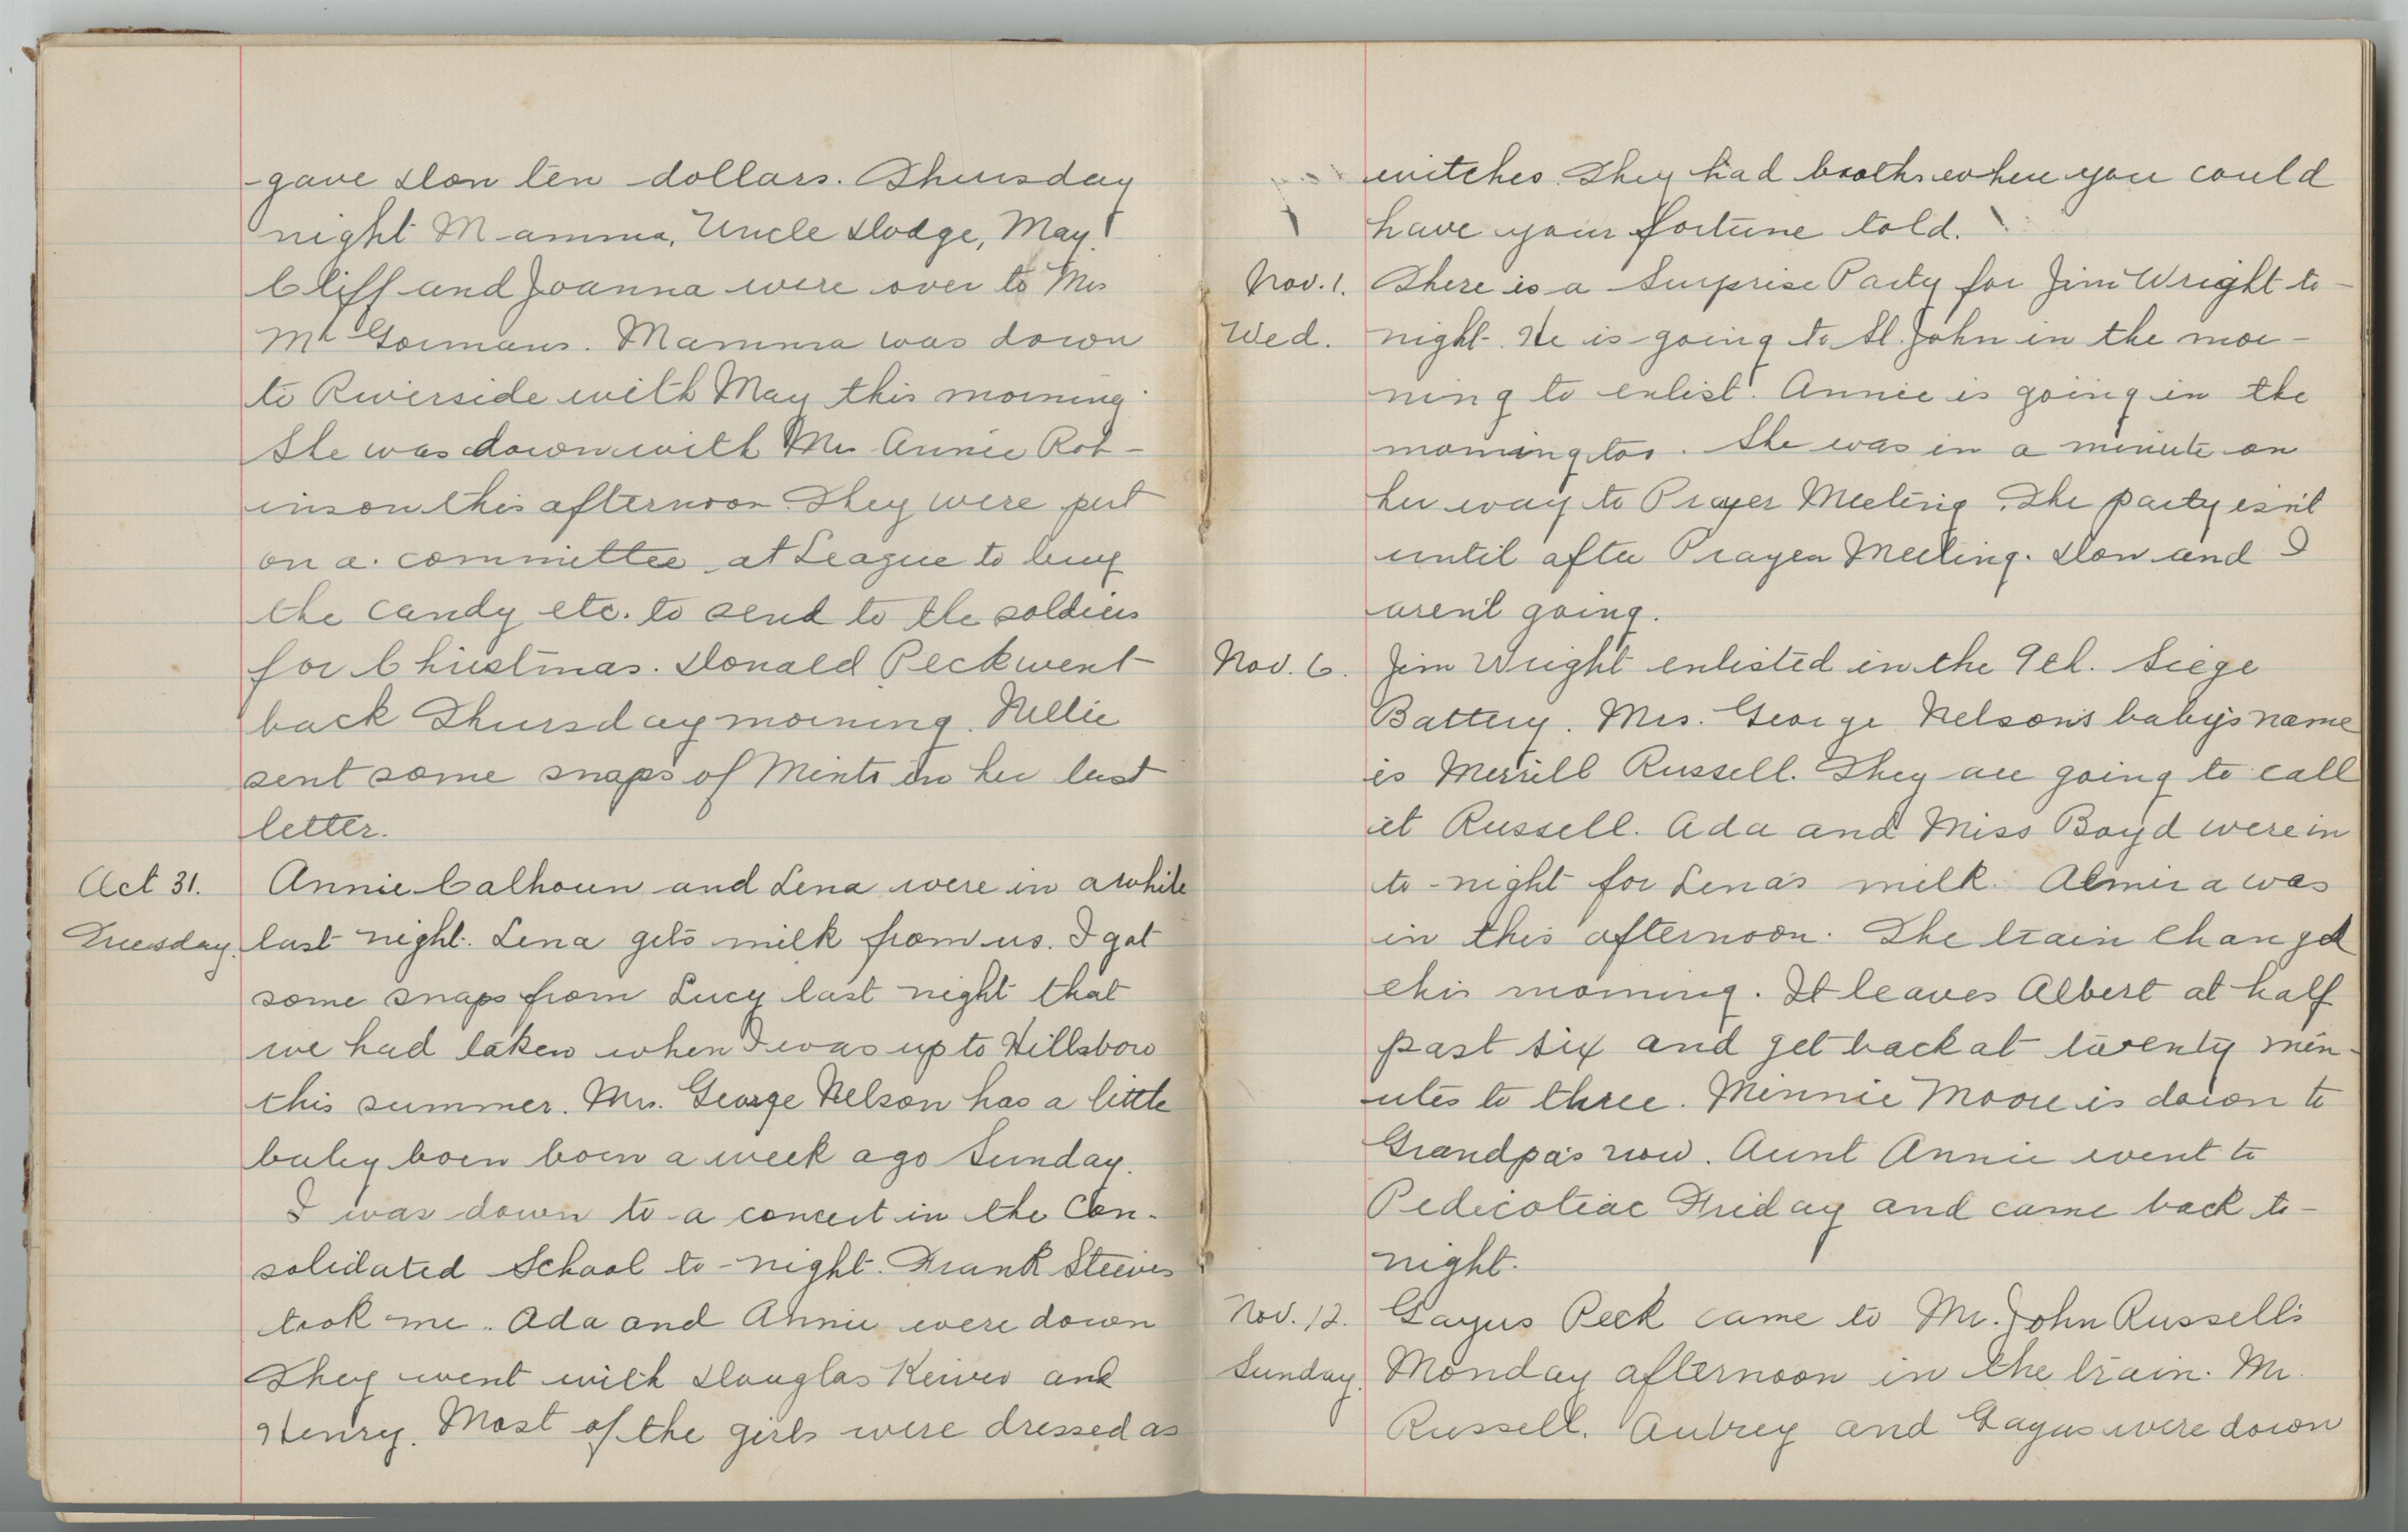 gave Don ten dollars. Thursday
night Mamma, Uncle Dodge, May,
Cliff and Joanna were over to Mrs
Mc Gormans. Mamma was down
to Riverside with May this morning.
She was down with Mrs Annie Rob-
inson this afternoon. They were put
on a committee at League to buy
the candy etc. to send to the soldiers
for Christmas. Donald Peck went
back Thursday morning. Nellie
sent some snaps of Minto in her last
letter.
Oct 31. Annie Calhoun and Lena were in a while
Tuesday. last night. Lena gets milk from us. I got
some snaps from Lucy last night that
we had taken when I was up to Hillsboro
this summer. Mrs. George Nelson has a little
baby born born a week ago Sunday.
I was down to a concert in the Con-
solidated School to-night. Frank Steeves
took me. Ada and Annie were down
They went with Douglas and
Henry. Most of the girls were dressed as
witches. They had booths where you could
have your fortune told.
Nov. 1. There is a Surprise Party for Jim Wright to-
Wed. night. He is going to St. John in the mor-
ning to enlist. Annie is going in the
morning too. She was in a minute on
her way to Prayer Meeting. The party isn't
until after Prayer Meeting. Don and I
aren't going.
Nov. 6. Jim Wright enlisted in the 9th. Siege
Battery. Mrs. George Nelson's baby's name
is Merrill Russell. They are going to call
it Russell. Ada and Miss Boyd were in
to-night for Lena's milk. Almira was
in this afternoon. The train changed
this morning. It leaves Albert at half
past six and get back at twenty min-
utes to three. Minnie Moore is down to
Grandpa's now. Aunt Annie went to
Pedicotiac Friday and came back to-
night.
Nov. 12. Gayus Peck came to Mr. John Russell's
Sunday. Monday afternoon in the train. Mr.
Russell. Aubrey and Gayus were down